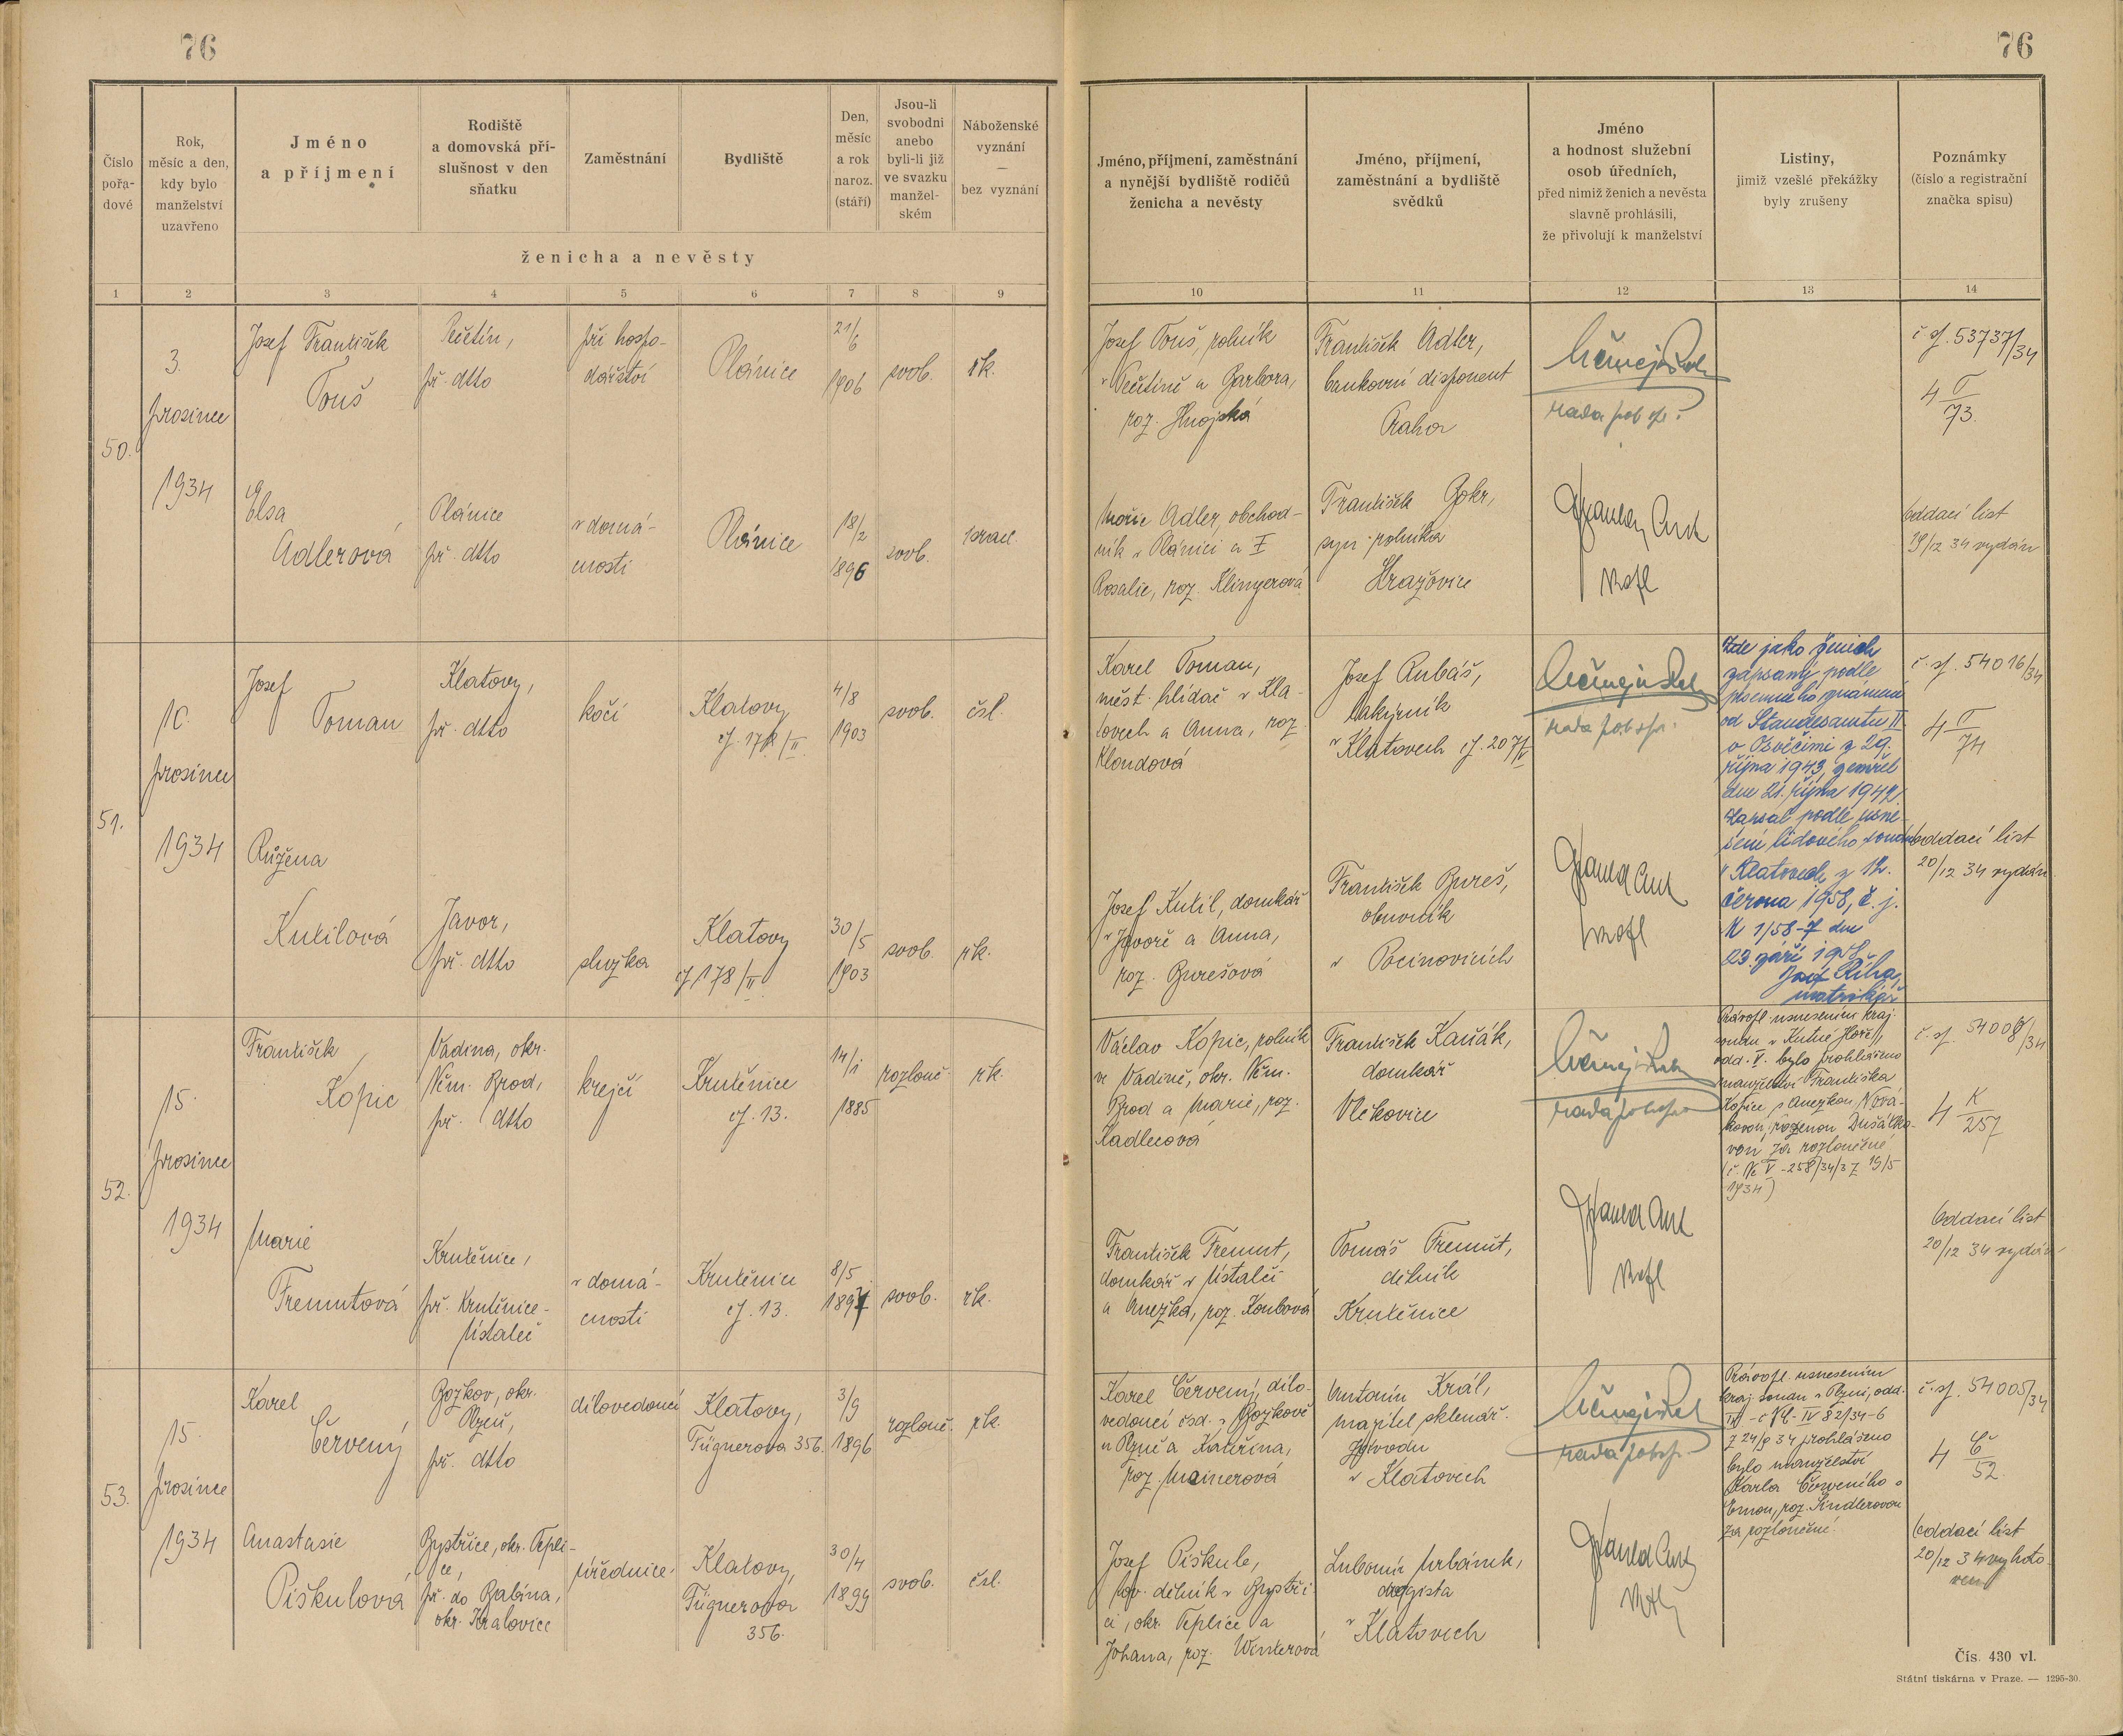 76
76
Číslo pořadové
Rok, měsíc a den, kdy bylo manželství uzavřeno
Jméno a příjmení
Rodiště a domovská příslušnost v den sňatku
Zaměstnání
Bydliště
Den, měsíc a rok naroz. (stáří)
Jsou-li svobodni anebo byli-li již ve svazku manželském
Náboženské vyznání — bez vyznání
ženicha a nevěsty
Jméno, příjmení, zaměstnání a nynější bydliště rodičů ženicha a nevěsty
Jméno, příjmení, zaměstnání a bydliště svědků
Jméno a hodnost služební osob úředních, před nimiž ženich a nevěsta slavně prohlásili, že přivolují k manželství
Listiny, jimiž vzešlé překážky byly zrušeny
Poznámky (číslo a registrační značka spisu)
1 2 3 4 5 6 7 8 9 10 11 12 13 14
50.
3.
prosince
1934
Josef František
Touš
př. dtto
při hospo-
dářství
Plánice
21/6
1906
svob.
řk.
Josef Touš, rolník
a Barbora,
roz. Hnojská
František Adler,
bankovní disponent
Praha
rada pol. spr.
č. j. 53737/34
4 T/73.
Elsa
Adlerová
Plánice
př. dtto
v domá-
cnosti
Plánice
18/2
1896
svob.
israel.
Moric Adler, obchod-
ník v Plánici a †
Rosalie, roz. Klingerová
František Bokr,
syn rolníka
Hražovice
Oddací list
19/12 34 vydán
51.
10.
prosince
1934
Josef
Toman
Klatovy,
př. dtto
kočí
Klatovy
čj. 178/II.
4/8
1903
svob.
čsl.
Karel Toman,
měst. hlídač v Kla-
tovech a Anna, roz.
Kloudová
Josef Rubáš,
lakýrník
v Klatovech čj. 207/V
rada pol. spr.
Zde jako ženich
zapsaný podle
písemného oznámení
od Standesamtu II
v Osvěčimi z 29.
října 1943, zemřel
dne 21. října 1942.
Zapsal podle usne-
sení lidového soudu
v Klatovech z 12.
června 1958, č. j.
M 1/58-7 dne
23. září 1958.
Josef Říha,
matrikář
č. j. 54016/34
4 T/74
Růžena
Kutilová
Javor,
př. dtto
služka
Klatovy
čj 178/II
30/5
1903
svob.
řk.
Josef Kutil, domkář
v Javoře a Anna,
roz. Burešová
František Bureš,
obuvník
v Počinovicích
Oddací list
20/12 34 vydán
52.
15.
prosince
1934
František
Kopic
Vadina, okr.
Něm. Brod,
př. dtto
krejčí
Krutěnice
čj. 13.
14/1
1885
rozlouč.
řk.
Václav Kopic, rolník
ve Vadině, okr. Něm.
Brod a Marie, roz.
Kadlecová
František Kaňák,
domkář
Vlčkovice
rada pol. spr.
Právopl. usnesením kraj.
soudu v Kutné Hoře,
odd. V. bylo prohlášeno
manželství Františka
Kopice s Anežkou Nová-
kovou, rozenou Dušátko-
vou za rozloučené
(č. Nc V-258/34/3 z 19/5
1934)
č. j. 54006/34
4 K/257
Marie
Fremutová
Krutěnice,
př. Krutěnice-
Ústaleč
v domá-
cnosti
Krutěnice
čj. 13.
8/5
1897
svob.
řk.
František Fremut,
domkář v Ústalči
a Anežka, roz. Koubová
Tomáš Fremut,
dělník
Krutěnice
Oddací list
20/12 34 vydán
53.
15.
prosince
1934
Karel
Červený
Bozkov, okr.
Plzeň,
př. dtto
dílovedoucí
Klatovy,
Fügnerova 356.
3/9
1896
rozlouč.
řk.
Karel Červený, dílo-
vedoucí čsd. v Bozkově
u Plzně a Kateřina,
roz. Mainerová
Antonín Král,
majitel sklenář.
závodu
v Klatovech
rada pol. spr.
Právopl. usnesením
kraj. soudu v Plzni, odd.
IV - č Nc IV 82/34-6
z 24/9 34 prohlášeno
bylo manželství
Karla Červeného s
Emou, roz. Šindlerovou
za rozloučené.
č. j. 54005/34
4 Č/52.
Anastasie
Piškulová
Bystřice, okr. Tepli-
ce,
př. do Babina,
okr. Kralovice
úřednice
Klatovy,
Fügnerova
356.
30/4
1899
svob.
čsl.
Josef Piškule,
tov. dělník v Bystři-
ci, okr. Teplice a
Johana, roz. Winterová
Lubomír Urbánek,
drogista
v Klatovech
Oddací list
20/12 34 vyhoto-
ven
Čís. 430 vl.
Státní tiskárna v Praze. — 1295-30.